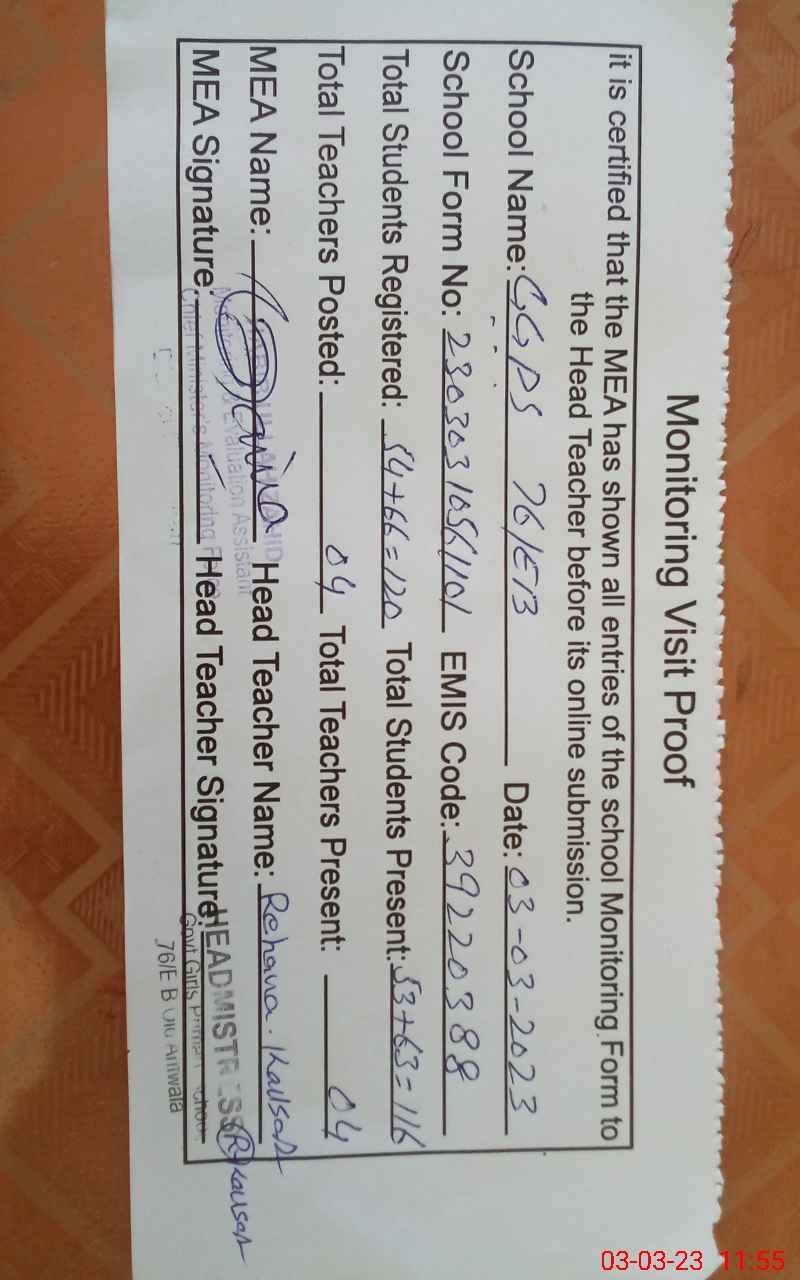 Monitoring Visit Proof
it is certified that the MEA has shown all entries of the school Monitoring Form to
the Head Teacher before its online submission.
School Name: GGPS 76/EB Date: 03-03-2023
School Form No: EMIS Code: 39220388
Total Students Registered: 54+66=120 Total Students Present: 53+63=116
Total Teachers Posted: 04 Total Teachers Present: 04
MEA Name: Head Teacher Name: Rehana Kausar
Monitoring & Evaluation Assistant
MEA Signature: Head Teacher Signature: R Kausar
Chief Minister's Monitoring
HEADMISTRESS
Govt Girls Primary School
76/E B
03-03-23 11:55